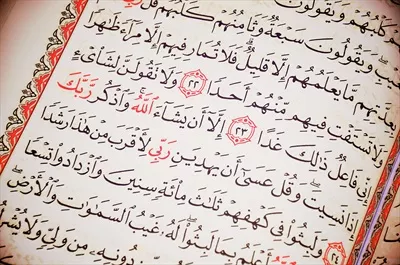 كَلْبُهُمْ وَيَقُولُونَ
وَيَقُولُونَ سَبْعَةٌ وَثَامِنُهُمْ كَلْبُهُمْ قُل
بِعِدَّتِهِم مَّا يَعْلَمُهُمْ إِلَّا قَلِيلٌ فَلَا تُمَارِ فِيهِمْ إِلَّا مِرَآءً ظَٰهِرًا
وَلَا تَسْتَفْتِ فِيهِم مِّنْهُمْ أَحَدًا ٢٢ وَلَا تَقُولَنَّ لِشَاْىْءٍ
إِنِّى فَاعِلٌ ذَٰلِكَ غَدًا ٢٣ إِلَّآ أَن يَشَآءَ ٱللَّهُ وَٱذْكُر رَّبَّكَ
إِذَا نَسِيتَ وَقُلْ عَسَىٰٓ أَن يَهْدِيَنِ رَبِّى لِأَقْرَبَ مِنْ هَٰذَا رَشَدًا ٢٤
وَلَبِثُوا۟ فِى كَهْفِهِمْ ثَلَٰثَ مِا۟ئَةٍ سِنِينَ وَٱزْدَادُوا۟ تِسْعًا
أَعْلَمُ بِمَا لَبِثُوا۟ لَهُۥ غَيْبُ ٱلسَّمَٰوَٰتِ وَٱلْأَرْضِ
دُونِهِۦ مِن وَلِىٍّ وَلَا